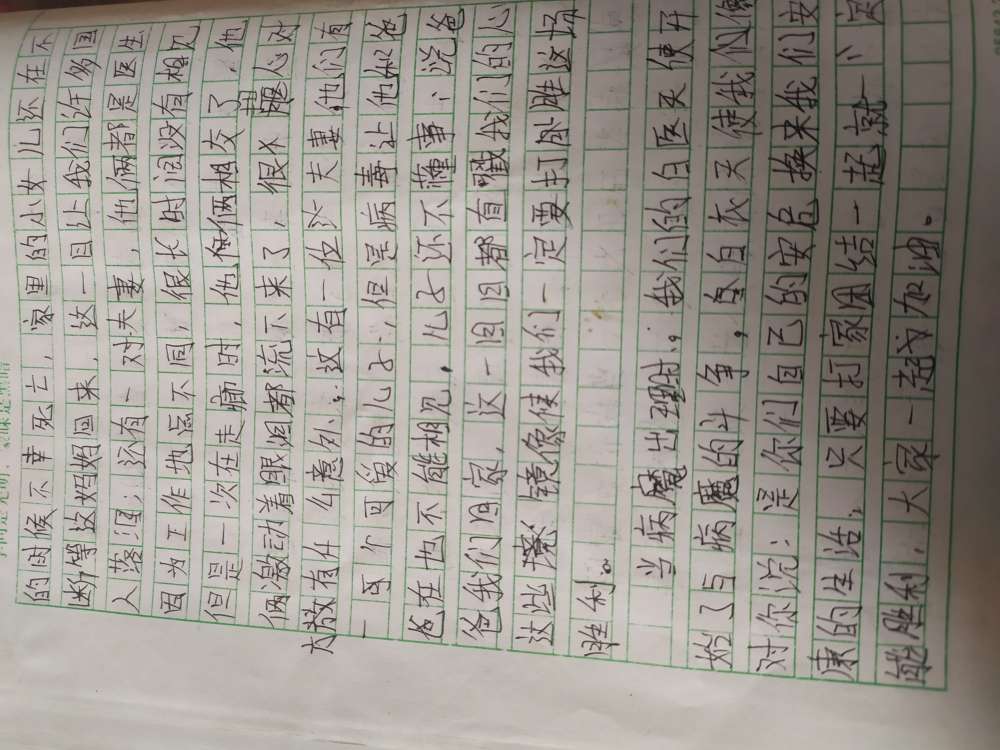 的时候不幸死亡，家里的小女儿还在不
断等这妈妈回来，这一目让我们许多国
人落泪；还有一对夫妻，他俩都是医生
因为工作地点不同，很长时间没有相见
但是一次在走廊时，他俩相交了，他
俩激动着眼泪都流下来了，很不甘心对
大放有什么意外；这有一位次夫妻，他们有
一个可爱的儿子，但是病毒让他和爸
爸在也不能相见，儿子还不懂事，说爸
爸我们回家，这一回回都有戳我们的心
这些镜像使我们一定要打败胜这场
胜利。
当病魔出现时，我们的白医天使开
始了与病魔的斗争，身白衣天使我们像
对你说：是你们自己的安危换来我们安
康的生活，只要打家团结一起就一定
能胜利，大家一起为加油。